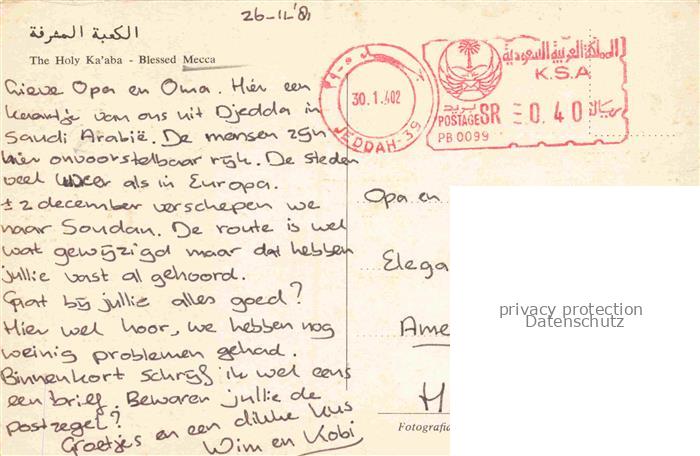 26-11-'81
الكعبة المشرفة
The Holy Ka'aba - Blessed Mecca
Lieve Opa en Oma. Hier een
kaartje van ons uit Djedda in
Saudi Arabië. De mensen zijn
hier onvoorstelbaar rijk. De steden
veel als in Europa.
± 2 december verschepen we
naar Soudan. De route is wel
wat gewijzigd maar dat hebben
jullie vast al gehoord.
Gaat bij jullie alles goed?
Hier wel hoor, we hebben nog
weinig problemen gehad.
Binnenkort schrijf ik wel eens
een brief. Bewaren jullie de
postzegel?
Groetjes en een dikke kus
Wim en Kobi
30.1.402
JEDDAH-39
المملكة العربية السعودية
K.S.A
بريد
POSTAGE SR 0.40 ريال
PB 0099
Opa en
Elega
Ame
H
Fotografia
privacy protection
Datenschutz